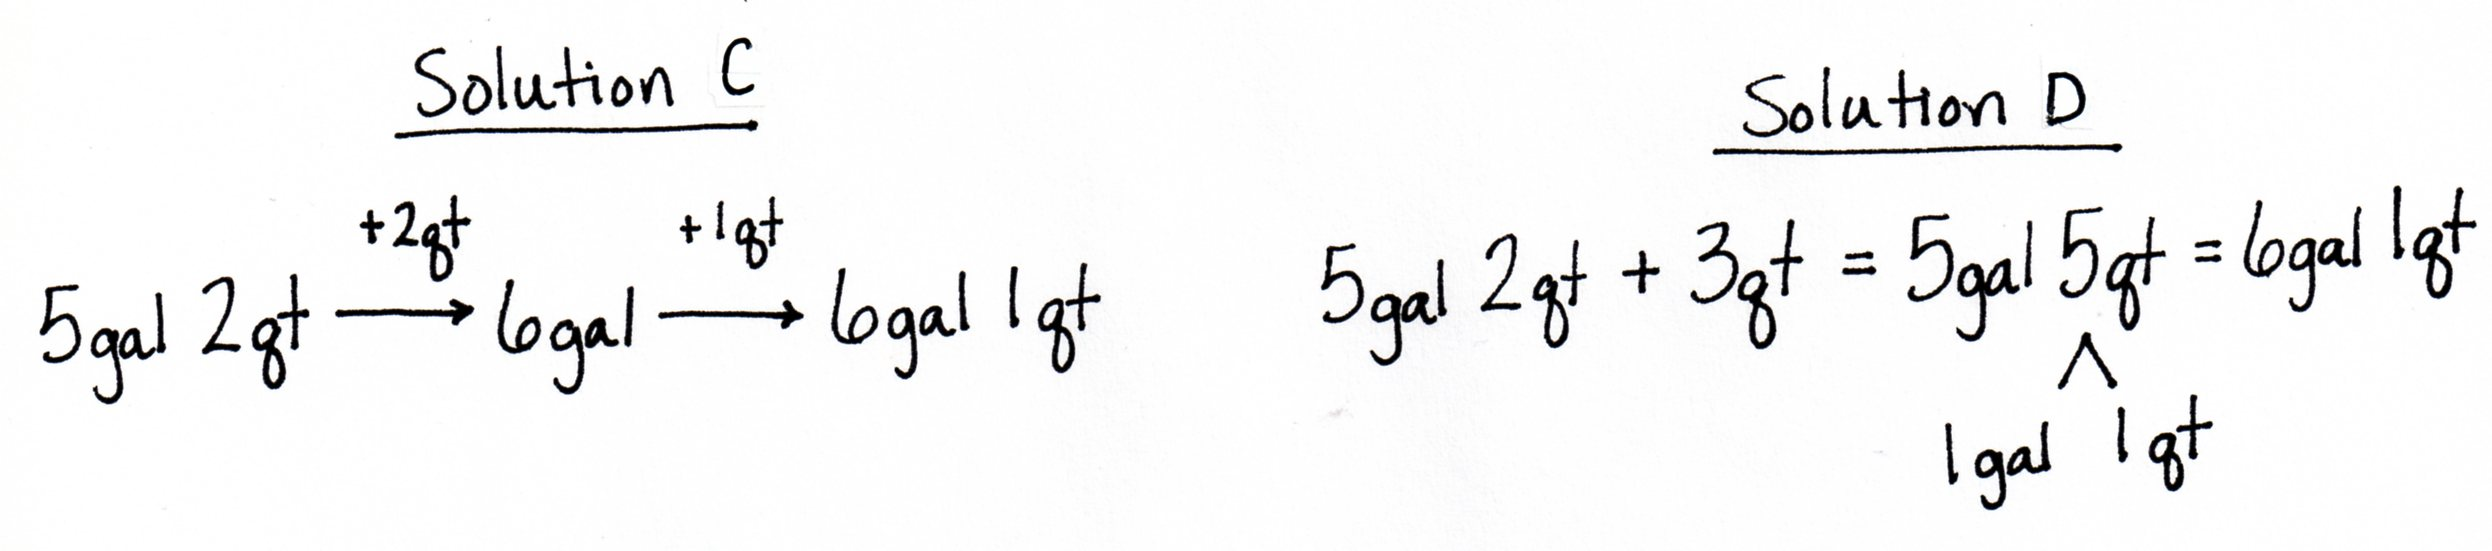 Solution C
+2qt +1qt
5gal 2qt → 6gal → 6gal 1qt
Solution D
5gal 2qt + 3qt = 5gal 5qt = 6gal 1qt
1gal 1qt